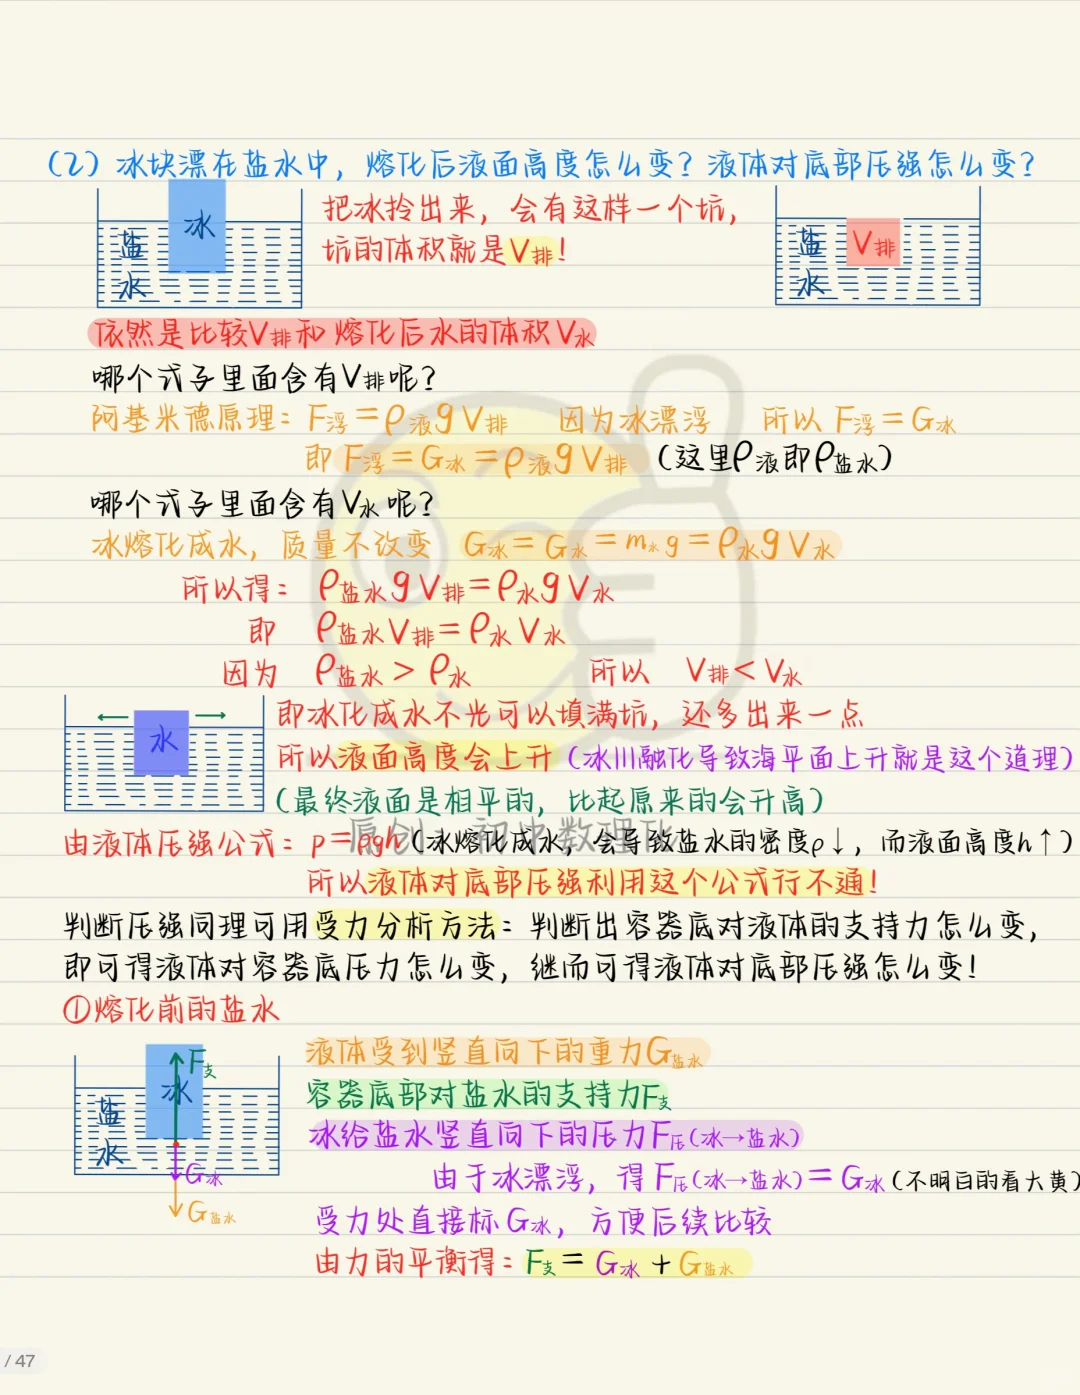 (2) 冰块漂在盐水中，熔化后液面高度怎么变？液体对底部压强怎么变？
冰
盐
水
把冰拎出来，会有这样一个坑，
坑的体积就是V排！
盐
水
V排
依然是比较V排和熔化后水的体积V水
哪个式子里面含有V排呢？
阿基米德原理：F浮＝ρ液gV排 因为冰漂浮 所以 F浮＝G冰
即 F浮＝G冰＝ρ液gV排 (这里ρ液即ρ盐水)
哪个式子里面含有V水呢？
冰熔化成水，质量不改变 G冰＝G水＝m水g＝ρ水gV水
所以得：ρ盐水gV排＝ρ水gV水
即 ρ盐水V排＝ρ水V水
因为 ρ盐水＞ρ水 所以 V排＜V水
水
即冰化成水不光可以填满坑，还多出来一点
所以液面高度会上升（冰川融化导致海平面上升就是这个道理）
（最终液面是相平的，比起原来的会升高）
原创：初中数理化
由液体压强公式：p＝ρgh（冰熔化成水，会导致盐水的密度ρ↓，而液面高度h↑）
所以液体对底部压强利用这个公式行不通！
判断压强同理可用受力分析方法：判断出容器底对液体的支持力怎么变，
即可得液体对容器底压力怎么变，继而可得液体对底部压强怎么变！
①熔化前的盐水
F支
冰
盐
水
G冰
G盐水
液体受到竖直向下的重力G盐水
容器底部对盐水的支持力F支
冰给盐水竖直向下的压力F压(冰→盐水)
由于冰漂浮，得 F压(冰→盐水)＝G冰 (不明白的看大黄)
受力处直接标G冰，方便后续比较
由力的平衡得：F支＝G冰＋G盐水
/ 47